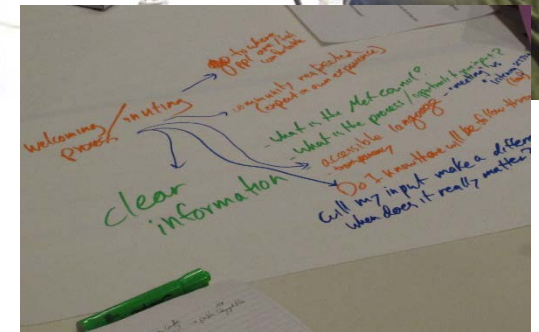 welcoming / inviting
process
go to where
ppl are most
comfortable
community respected
(expert in own experience)
- What is the Met Council?
- What is the process / opportunity for input?
- accessible language
- meeting us
- transparency
Do I know there will be follow through
will my input make a differen
when does it really matter?
clear
information